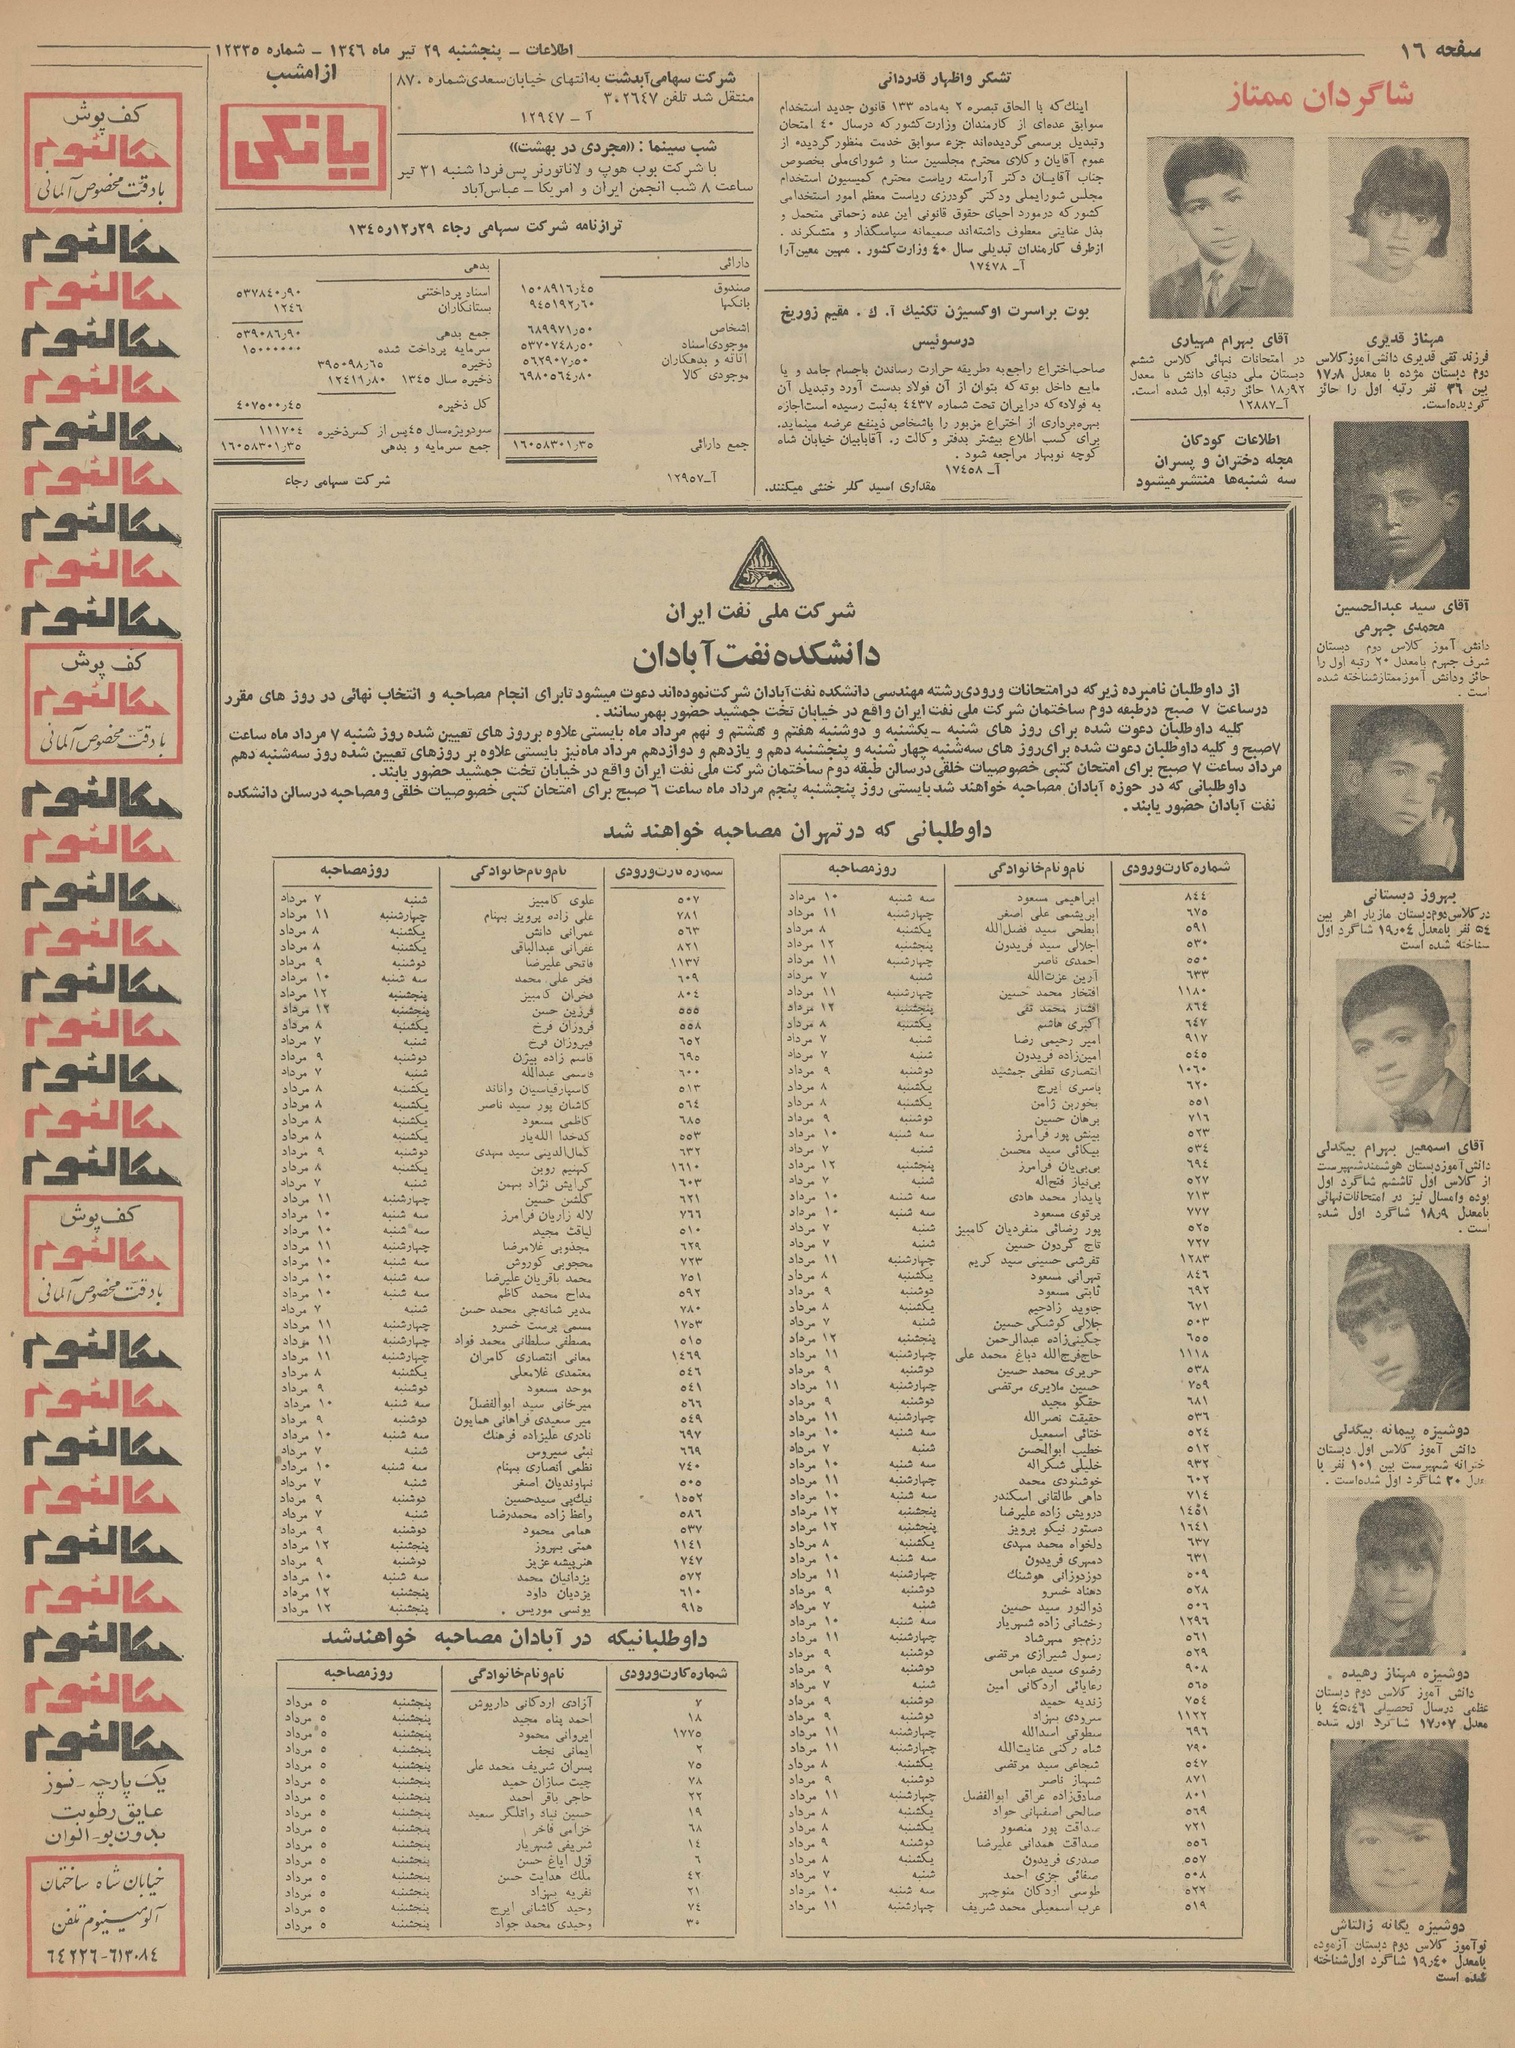 صفحه ۱۶
اطلاعات - پنجشنبه ۲۹ تیر ماه ۱۳۴۶ - شماره ۱۲۳۳۵
شاگردان ممتاز
مهناز قدیری
فرزند تقی قدیری دانش‌آموز کلاس
دوم دبستان مژده با معدل ۱۷٫۸
بین ۳۶ نفر رتبه اول را حائز
گردیده‌است.
آقای بهرام مهیاری
در امتحانات نهائی کلاس ششم
دبستان ملی دنیای دانش با معدل
۱۸٫۹۲ حائز رتبه اول شده است.
آ-۱۲۸۸۷
اطلاعات کودکان
مجله دختران و پسران
سه شنبه‌ها منتشر میشود
آقای سید عبدالحسین
محمدی جهرمی
دانش آموز کلاس دوم دبستان
شرف جهرم با معدل ۲۰ رتبه اول را
حائز و دانش آموز ممتاز شناخته شده
است .
بهروز دبستانی
در کلاس دوم دبستان مازیار اهر بین
۵۴ نفر بامعدل ۱۹٫۰۴ شاگرد اول
شناخته شده است
آقای اسمعیل بهرام بیگدلی
دانش‌آموز دبستان هوشمند شهپرست
از کلاس اول تاششم شاگرد اول
بوده و امسال نیز در امتحانات نهائی
بامعدل ۱۸٫۹ شاگرد اول شده
است .
دوشیزه پیمانه بیگدلی
دانش آموز کلاس اول دبستان
دخترانه شهپرست بین ۱۰۱ نفر با
معدل ۲۰ شاگرد اول شده‌است .
دوشیزه مهناز رهیده
دانش آموز کلاس دوم دبستان
عظمی درسال تحصیلی ۴۵٫۴۶ با
معدل ۱۷٫۰۷ شاگرد اول شده
دوشیزه یگانه زالتاش
نوآموز کلاس دوم دبستان آزموده
بامعدل ۱۹٫۴۰ شاگرد اول شناخته
شده است
تشکر و اظهار قدردانی
اینک که با الحاق تبصره ۲ به‌ماده ۱۳۳ قانون جدید استخدام
سوابق عده‌ای از کارمندان وزارت کشور که درسال ۴۰ امتحان
و تبدیل برسمی گردیده‌اند جزء سوابق خدمت منظور گردید، از
عموم آقایان وکلای محترم مجلسین سنا و شورای‌ملی بخصوص
جناب آقایان دکتر آراسته ریاست محترم کمیسیون استخدام
مجلس شورایملی و دکتر گودرزی ریاست معظم امور استخدامی
کشور که درمورد احیای حقوق قانونی این عده زحماتی متحمل و
بذل عنایتی معطوف داشته‌اند صمیمانه سپاسگذار و متشکرند .
از طرف کارمندان تبدیلی سال ۴۰ وزارت کشور . مهین معین‌آرا
آ- ۱۷۴۷۸
بوت براسرت اوکسیژن تکنیك آ. ك . مقیم زوریخ
در سوئیس
صاحب اختراع راجع به «طریقه حرارت رساندن باجسام جامد و یا
مایع داخل بوته که بتوان از آن فولاد بدست آورد و تبدیل آن
به فولاد» که در ایران تحت شماره ۴۴۳۷ به‌ثبت رسیده است اجازه
بهره‌برداری از اختراع مزبور را باشخاص ذینفع عرضه مینماید.
برای کسب اطلاع بیشتر بدفتر وکالت ر. آقابابیان خیابان شاه
کوچه نوبهار مراجعه شود .
آ- ۱۷۴۵۸
مقداری اسید کلر خنثی میکنند.
شرکت سهامی آبدشت به‌انتهای خیابان سعدی شماره ۸۷۰
منتقل شد تلفن ۳۰۲۶۴۷
آ - ۱۲۹۴۷
شب سینما : «مجردی در بهشت»
با شرکت بوب هوپ و لاناتورنر پس‌فردا شنبه ۳۱ تیر
ساعت ۸ شب انجمن ایران و امریکا - عباس‌آباد
از امشب
یانکی
ترازنامه شرکت سهامی رجاء ۲۹٫۱۲٫۱۳۴۵
دارائی
صندوق ۱۵۰۸۹۱۶٫۴۵
بانکها ۹۴۵۱۹۲٫۶۰
اشخاص ۶۸۹۹۷۱٫۵۰
موجودی اسناد ۵۳۷۰۷۴۸٫۵۰
اثاثه و بدهکاران ۵۶۲۹۰۷٫۵۰
موجودی کالا ۶۹۸۰۵۶۴٫۸۰
جمع دارائی ۱۶۰۵۸۳۰۱٫۳۵
آ-۱۲۹۵۷
بدهی
اسناد پرداختنی ۵۳۷۸۴۰٫۹۰
بستانکاران ۱۲۴۶
جمع بدهی ۵۳۹۰۸۶٫۹۰
سرمایه پرداخت شده ۱۵۰۰۰۰۰۰
ذخیره ۳۹۵۰۹۸٫۶۵
ذخیره سال ۱۳۴۵ ۱۲۴۱۱٫۸۰
کل ذخیره ۴۰۷۵۰۰٫۴۵
سود ویژه سال ۴۵ پس از کسر ذخیره ۱۱۱۷۰۴
جمع سرمایه و بدهی ۱۶۰۵۸۳۰۱٫۳۵
شرکت سهامی رجاء
شرکت ملی نفت ایران
دانشکده نفت آبادان
از داوطلبان نامبرده زیر که در امتحانات ورودی رشته مهندسی دانشکده نفت آبادان شرکت نموده‌اند دعوت میشود تا برای انجام مصاحبه و انتخاب نهائی در روز های مقرر
درساعت ۷ صبح درطبقه دوم ساختمان شرکت ملی نفت ایران واقع در خیابان تخت جمشید حضور بهمرسانند .
کلیه داوطلبان دعوت شده برای روز های شنبه - یکشنبه و دوشنبه هفتم و هشتم و نهم مرداد ماه بایستی علاوه برروز های تعیین شده روز شنبه ۷ مرداد ماه ساعت
۷ صبح و کلیه داوطلبان دعوت شده برای روز های سه‌شنبه چهار شنبه و پنجشنبه دهم و یازدهم و دوازدهم مرداد ماه نیز بایستی علاوه بر روزهای تعیین شده روز سه‌شنبه دهم
مرداد ساعت ۷ صبح برای امتحان کتبی خصوصیات خلقی درسالن طبقه دوم ساختمان شرکت ملی نفت ایران واقع در خیابان تخت جمشید حضور یابند .
داوطلبانی که در حوزه آبادان مصاحبه خواهند شد بایستی روز پنجشنبه پنجم مرداد ماه ساعت ۶ صبح برای امتحان کتبی خصوصیات خلقی و مصاحبه درسالن دانشکده
نفت آبادان حضور یابند .
داوطلبانی که در تهران مصاحبه خواهند شد
شماره کارت ورودی نام و نام خانوادگی روز مصاحبه
۸۴۴ ابراهیمی مسعود سه شنبه ۱۰ مرداد
۶۷۵ ابریشمی علی اصغر چهارشنبه ۱۱ مرداد
۵۹۱ ابطحی سید فضل‌الله یکشنبه ۸ مرداد
۵۳۰ اجلالی سید فریدون پنجشنبه ۱۲ مرداد
۵۵۰ احمدی ناصر چهارشنبه ۱۱ مرداد
۶۳۳ آرین عزت‌الله شنبه ۷ مرداد
۱۱۸۰ افتخار محمد حسین چهارشنبه ۱۱ مرداد
۸۶۴ افشار محمد تقی پنجشنبه ۱۲ مرداد
۶۴۷ اکبری هاشم یکشنبه ۸ مرداد
۹۱۷ امیر رحیمی رضا شنبه ۷ مرداد
۵۴۵ امین‌زاده فریدون شنبه ۷ مرداد
۱۰۶۰ انتصاری تطفی جمشید دوشنبه ۹ مرداد
۶۲۰ یاسری ایرج یکشنبه ۸ مرداد
۵۵۱ بخوربن ژامن یکشنبه ۸ مرداد
۷۱۶ برهان حسین دوشنبه ۹ مرداد
۵۲۳ بینش پور فرامرز سه شنبه ۱۰ مرداد
۵۳۴ بیکائی سید محسن شنبه ۷ مرداد
۶۹۴ بی‌بی‌یان فرامرز پنجشنبه ۱۲ مرداد
۵۲۷ بی‌نیاز فتح‌اله شنبه ۷ مرداد
۷۱۳ پایدار محمد هادی سه شنبه ۱۰ مرداد
۷۷۷ پرتوی مسعود سه شنبه ۱۰ مرداد
۵۲۵ پور رضائی منفردیان کامبیز شنبه ۷ مرداد
۷۲۷ تاج گردون حسین شنبه ۷ مرداد
۱۲۸۳ تفرشی حسینی سید کریم چهارشنبه ۱۱ مرداد
۸۴۶ تهرانی مسعود یکشنبه ۸ مرداد
۶۹۲ ثابتی مسعود دوشنبه ۹ مرداد
۶۷۱ جاوید زادجیم یکشنبه ۸ مرداد
۵۰۳ جلالی کوشکی حسین شنبه ۷ مرداد
۶۵۵ چگینی‌زاده عبدالرحمن پنجشنبه ۱۲ مرداد
۱۱۱۸ حاج‌فرج‌الله دباغ محمد علی چهارشنبه ۱۱ مرداد
۵۳۸ حریری محمد حسین دوشنبه ۹ مرداد
۷۵۹ حسین ملایری مرتضی چهارشنبه ۱۱ مرداد
۶۸۱ حقگو مجید دوشنبه ۹ مرداد
۵۳۶ حقیقت نصرالله چهارشنبه ۱۱ مرداد
۵۲۴ ختائی اسمعیل سه شنبه ۱۰ مرداد
۵۱۲ خطیب ابوالحسن شنبه ۷ مرداد
۹۳۲ خلیلی شکراله سه شنبه ۱۰ مرداد
۶۰۲ خوشنودی محمد چهارشنبه ۱۱ مرداد
۷۱۴ داهی طالقانی اسکندر سه شنبه ۱۰ مرداد
۱۴۵۱ درویش زاده علیرضا پنجشنبه ۱۲ مرداد
۱۶۴۱ دستور نیکو پرویز پنجشنبه ۱۲ مرداد
۶۳۷ دلخواه محمد مهدی یکشنبه ۸ مرداد
۶۳۱ دمهری فریدون سه شنبه ۱۰ مرداد
۵۰۹ دوزدوزانی هوشنك چهارشنبه ۱۱ مرداد
۵۲۸ دهناد خسرو دوشنبه ۹ مرداد
۵۰۶ ذوالنور سید حسین شنبه ۷ مرداد
۱۲۹۶ رخشانی زاده شهریار سه شنبه ۱۰ مرداد
۵۶۱ رزمجو مهرشاد چهارشنبه ۱۱ مرداد
۵۲۹ رسول شیرازی مرتضی دوشنبه ۹ مرداد
۹۰۸ رضوی سید عباس دوشنبه ۹ مرداد
۵۶۵ رعایائی اردکانی امین شنبه ۷ مرداد
۷۵۴ زندیه حمید دوشنبه ۹ مرداد
۱۱۲۲ سرودی بهزاد دوشنبه ۹ مرداد
۶۹۶ سطوتی اسدالله چهارشنبه ۱۱ مرداد
۷۹۰ شاه رکنی عنایت‌الله چهارشنبه ۱۱ مرداد
۵۴۷ شجاعی سید مرتضی یکشنبه ۸ مرداد
۸۷۱ شهباز ناصر دوشنبه ۹ مرداد
۸۰۱ صادق‌زاده عراقی ابوالفضل چهارشنبه ۱۱ مرداد
۵۶۹ صالحی اصفهانی جواد یکشنبه ۸ مرداد
۷۲۱ صداقت پور منصور یکشنبه ۸ مرداد
۵۵۶ صداقت همدانی علیرضا دوشنبه ۹ مرداد
۵۵۷ صدری فریدون یکشنبه ۸ مرداد
۵۰۸ صفائی جزی احمد شنبه ۷ مرداد
۵۲۲ طوسی اردکان منوچهر سه شنبه ۱۰ مرداد
۵۱۹ عرب اسمعیلی محمد شریف چهارشنبه ۱۱ مرداد
شماره کارت ورودی نام و نام خانوادگی روز مصاحبه
۵۰۷ علوی کامبیز شنبه ۷ مرداد
۷۸۱ علی زاده پرویز بهنام چهارشنبه ۱۱ مرداد
۵۶۳ عمرانی دانش یکشنبه ۸ مرداد
۸۲۱ غفرانی عبدالباقی یکشنبه ۸ مرداد
۱۱۳۷ فاتحی علیرضا دوشنبه ۹ مرداد
۶۰۹ فخر علی محمد سه شنبه ۱۰ مرداد
۸۰۴ فخران کامبیز پنجشنبه ۱۲ مرداد
۵۵۵ فرزین حسن پنجشنبه ۱۲ مرداد
۵۵۸ فروزان فرخ یکشنبه ۸ مرداد
۶۵۲ فیروزان فرخ شنبه ۷ مرداد
۶۹۵ قاسم زاده بیژن دوشنبه ۹ مرداد
۶۰۰ قاسمی عبدالله شنبه ۷ مرداد
۵۱۳ کاسپارقیاسیان واناند یکشنبه ۸ مرداد
۵۶۴ کاشان پور سید ناصر یکشنبه ۸ مرداد
۶۸۵ کاظمی مسعود یکشنبه ۸ مرداد
۵۵۳ کدخدا الله‌یار یکشنبه ۸ مرداد
۶۳۲ کمال‌الدینی سید مهدی دوشنبه ۹ مرداد
۱۶۱۰ کهنیم روبن یکشنبه ۸ مرداد
۶۰۳ گرایش نژاد بهمن شنبه ۷ مرداد
۶۲۱ گلشن حسین چهارشنبه ۱۱ مرداد
۷۶۶ لاله زاریان فرامرز سه شنبه ۱۰ مرداد
۵۱۰ لیاقت مجید سه شنبه ۱۰ مرداد
۶۲۹ مجذوبی غلامرضا چهارشنبه ۱۱ مرداد
۷۲۳ محجوبی کوروش سه شنبه ۱۰ مرداد
۷۵۱ محمد باقریان علیرضا سه شنبه ۱۰ مرداد
۵۹۲ مداح محمد کاظم سه شنبه ۱۰ مرداد
۷۸۰ مدیر شانه‌چی محمد حسن شنبه ۷ مرداد
۱۷۵۳ مسمی پرست خسرو چهارشنبه ۱۱ مرداد
۵۱۵ مصطفی سلطانی محمد فواد چهارشنبه ۱۱ مرداد
۱۴۶۹ معانی انتصاری کامران چهارشنبه ۱۱ مرداد
۵۴۶ معتمدی غلامعلی یکشنبه ۸ مرداد
۵۴۱ موحد مسعود دوشنبه ۹ مرداد
۵۶۶ میرخانی سید ابوالفضل سه شنبه ۱۰ مرداد
۵۴۹ میر سعیدی فراهانی همایون دوشنبه ۹ مرداد
۶۹۷ نادری علیزاده فرهنك سه شنبه ۱۰ مرداد
۶۶۹ نبئی سیروس شنبه ۷ مرداد
۷۴۰ نظمی انصاری بهنام سه شنبه ۱۰ مرداد
۵۰۵ نهاوندیان اصغر شنبه ۷ مرداد
۱۵۵۲ نیك‌پی سید حسین دوشنبه ۹ مرداد
۵۸۶ واعظ زاده محمدرضا شنبه ۷ مرداد
۵۳۷ همامی محمود دوشنبه ۹ مرداد
۱۱۴۱ همتی بهروز پنجشنبه ۱۲ مرداد
۷۴۷ هنرپیشه عزیز دوشنبه ۹ مرداد
۵۷۲ یزدانیان محمد سه شنبه ۱۰ مرداد
۶۱۰ یزدیان داود پنجشنبه ۱۲ مرداد
۹۱۵ یونسی موریس . پنجشنبه ۱۲ مرداد
داوطلبانیکه در آبادان مصاحبه خواهند شد
شماره کارت ورودی نام و نام خانوادگی روز مصاحبه
۷ آزادی اردکانی داریوش پنجشنبه ۵ مرداد
۱۸ احمد پناه مجید پنجشنبه ۵ مرداد
۱۷۷۵ ایروانی محمود پنجشنبه ۵ مرداد
۲ ایمانی نجف پنجشنبه ۵ مرداد
۷۵ پسران شریف محمد علی پنجشنبه ۵ مرداد
۷۸ چیت سازان حمید پنجشنبه ۵ مرداد
۲۲ حاجی باقر احمد پنجشنبه ۵ مرداد
۱۹ حسین نیاد واتلگر سعید پنجشنبه ۵ مرداد
۶۸ خزامی فاخر پنجشنبه ۵ مرداد
۱۴ شریفی شهریار پنجشنبه ۵ مرداد
۶ قزل ایاغ حسن پنجشنبه ۵ مرداد
۴۲ ملك هدایت حسن پنجشنبه ۵ مرداد
۲۱ نفریه بهزاد پنجشنبه ۵ مرداد
۷۴ وحید کاشانی ایرج پنجشنبه ۵ مرداد
۳۰ وحیدی محمد جواد پنجشنبه ۵ مرداد
کف پوش
متالئوم
بادقت مخصوص آلمانی
متالئوم
متالئوم
متالئوم
متالئوم
متالئوم
متالئوم
متالئوم
متالئوم
کف پوش
متالئوم
بادقت مخصوص آلمانی
متالئوم
متالئوم
متالئوم
متالئوم
متالئوم
متالئوم
متالئوم
متالئوم
متالئوم
کف پوش
متالئوم
بادقت مخصوص آلمانی
متالئوم
متالئوم
متالئوم
متالئوم
متالئوم
متالئوم
متالئوم
متالئوم
متالئوم
یک پارچه - نسوز
عایق رطوبت
بدون بو - الوان
خیابان شاه ساختمان
آلومینیوم تلفن
۶۱۳۰۸۴-۶۴۲۲۶